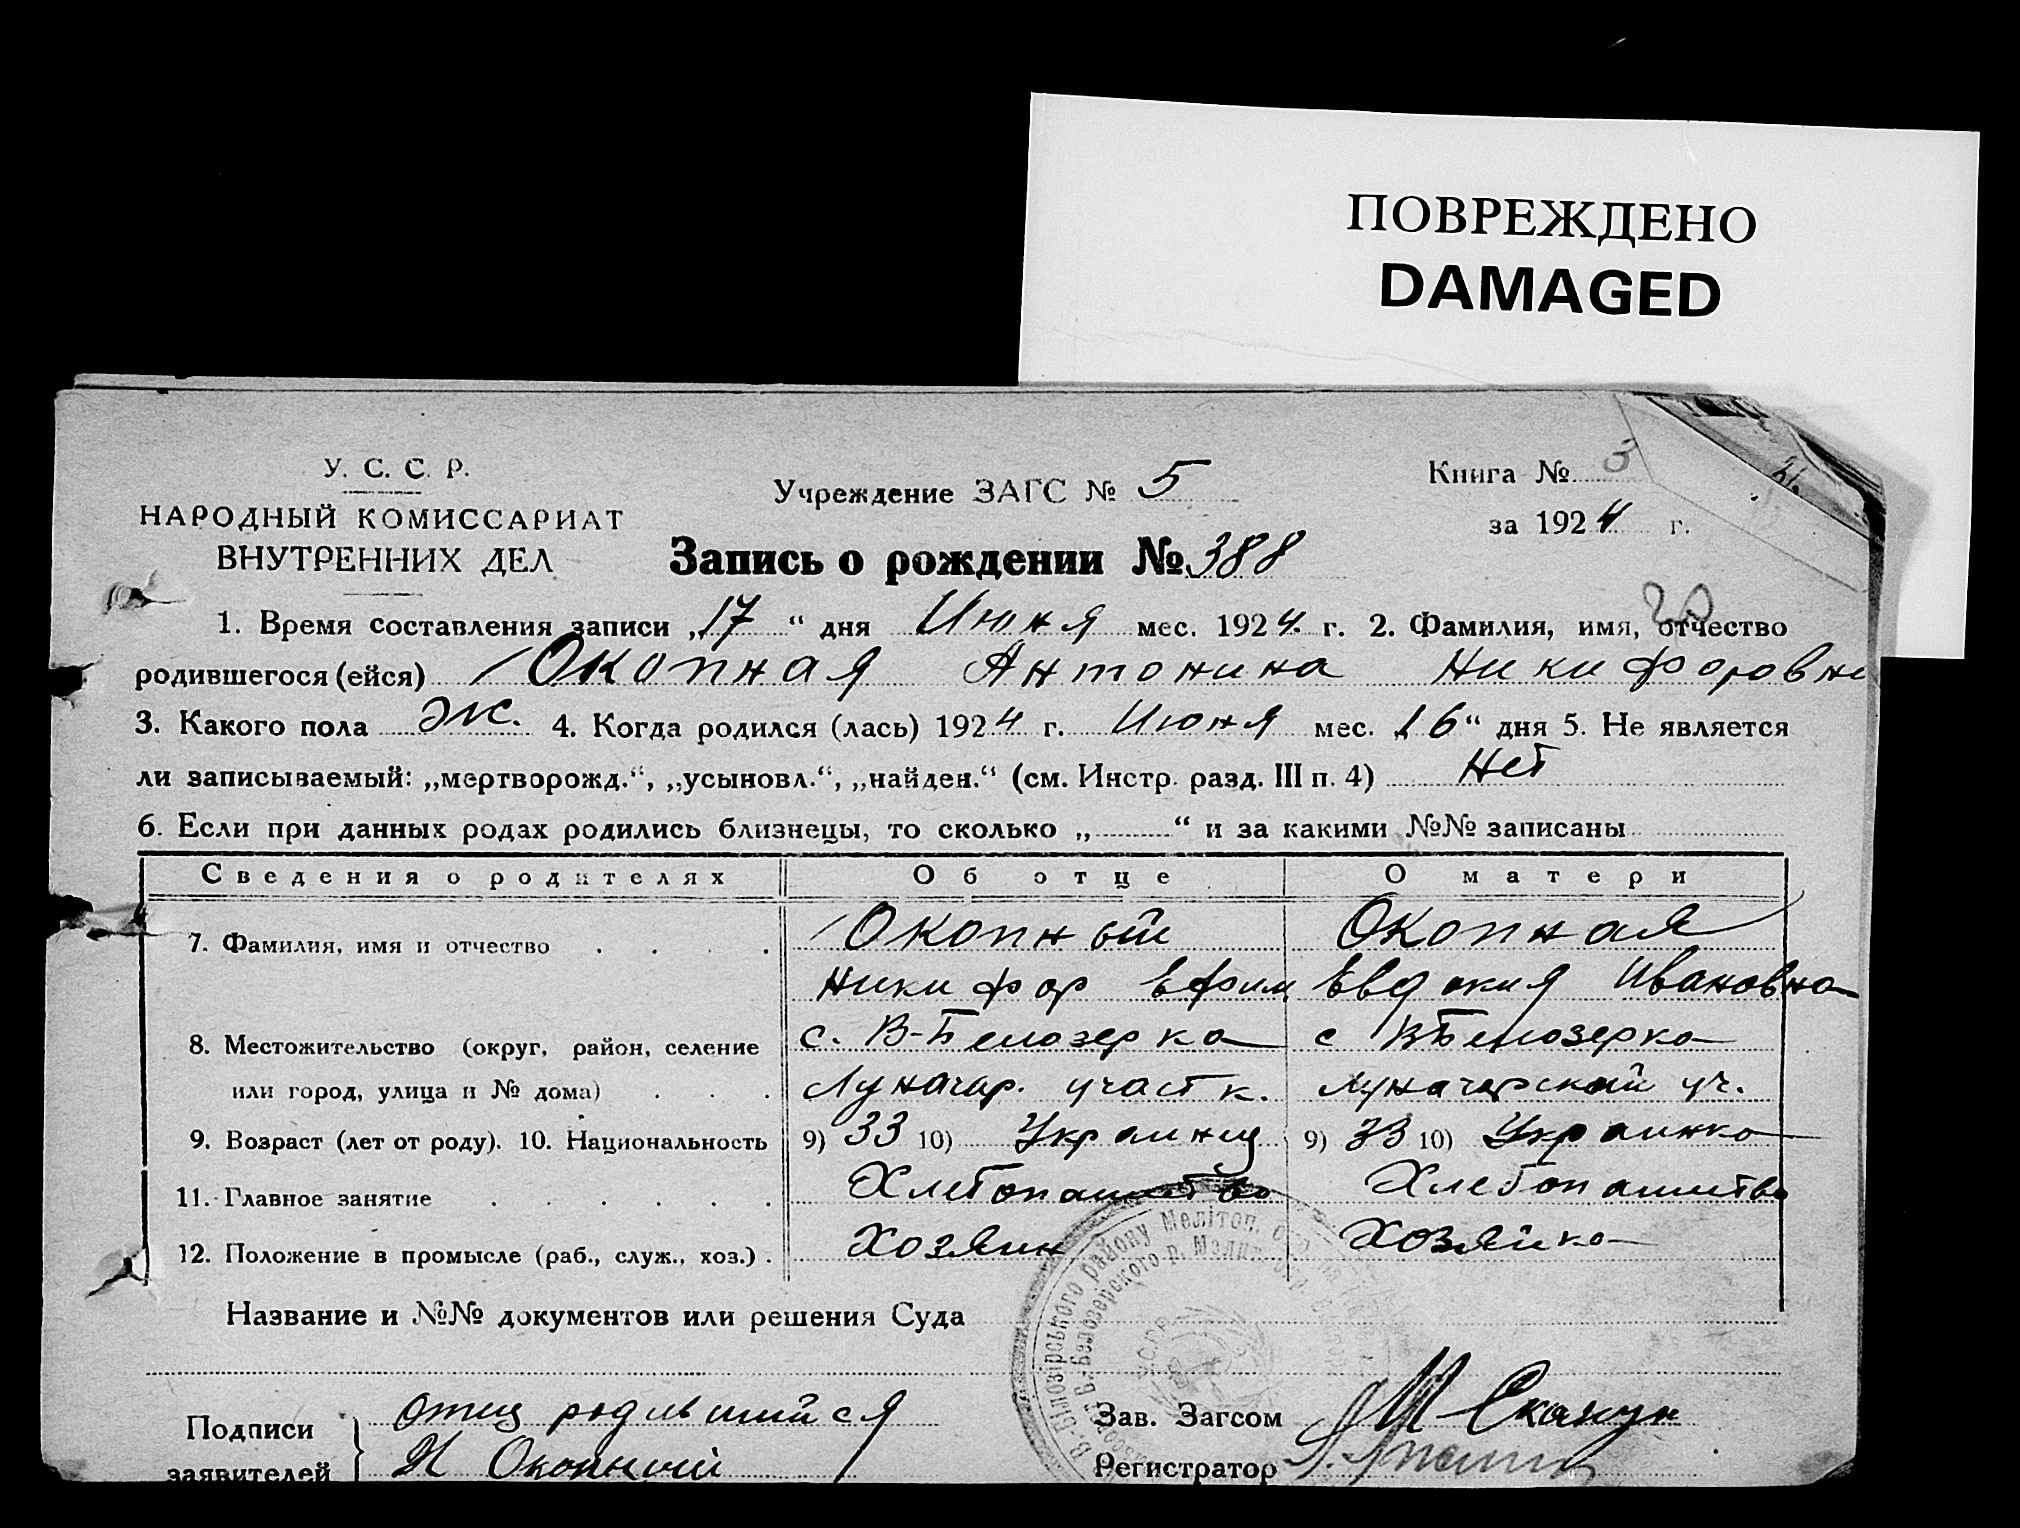 ПОВРЕЖДЕНО
DAMAGED
У. С. С. Р.
НАРОДНЫЙ КОМИССАРИАТ
ВНУТРЕННИХ ДЕЛ
Учреждение ЗАГС № 5
Книга № 3
за 1924 г.
Запись о рождении № 388
20
1. Время составления записи „17“ дня Июня мес. 1924 г. 2. Фамилия, имя, отчество
родившегося (ейся) Окопная Антонина Никифоровн
3. Какого пола ж. 4. Когда родился (лась) 1924 г. Июня мес. „16“ дня 5. Не является
ли записываемый: „мертворожд.“, „усыновл.“, „найден.“ (см. Инстр. разд. III п. 4) Нет
6. Если при данных родах родились близнецы, то сколько „ “ и за какими №№ записаны
Сведения о родителях Об отце О матери
7. Фамилия, имя и отчество Окопный Окопная
Никифор Ефим Евдокия Ивановна
8. Местожительство (округ, район, селение с. В-Белозерка с ВБелозерка
или город, улица и № дома) Луначар. участк. Луначарский уч.
9. Возраст (лет от роду). 10. Национальность 9) 33 10) Украинец 9) 33 10) Украинка
11. Главное занятие Хлебопашество Хлебопашество
12. Положение в промысле (раб., служ., хоз.) Хозяин Хозяйка
Название и №№ документов или решения Суда
В.-Білозірського району Мелітоп.
В. Белозерского р.
УСРР
Подписи отец родившийся
заявителей Н Окопный
Зав. Загсом
Регистратор